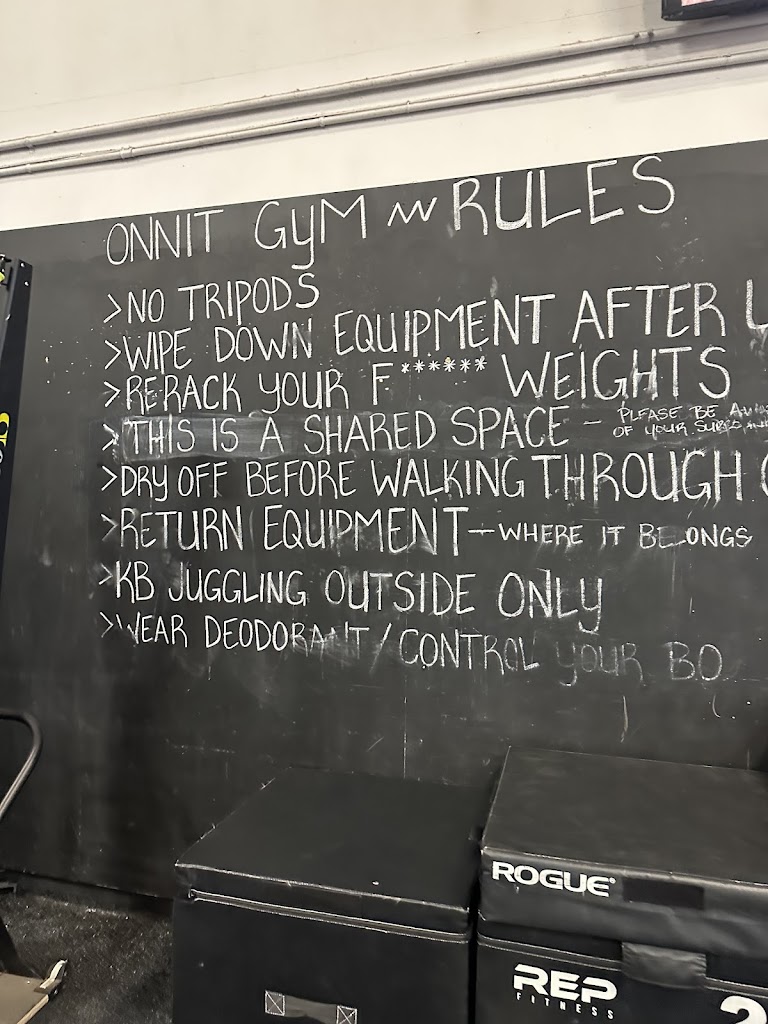 ONNIT GYM RULES
>NO TRIPODS
>WIPE DOWN EQUIPMENT AFTER
>RERACK YOUR F****** WEIGHTS
>THIS IS A SHARED SPACE - PLEASE BE
OF YOUR
>DRY OFF BEFORE WALKING THROUGH
>RETURN EQUIPMENT - WHERE IT BELONGS
>KB JUGGLING OUTSIDE ONLY
>WEAR DEODORANT/CONTROL YOUR BO
ROGUE
REP
FITNESS